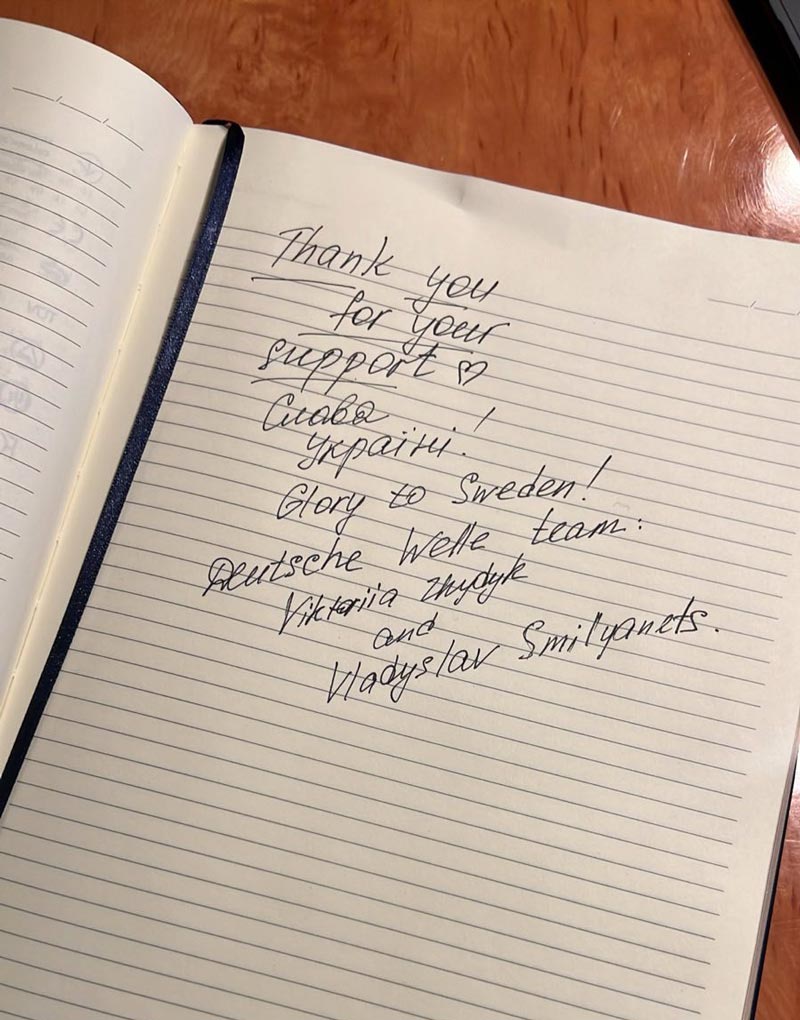 Thank you
for your
support ♡
Слава
Україні!
Glory to Sweden!
Deutsche Welle team:
Viktoriia Zhydyk
and
Vladyslav Smilyanets.